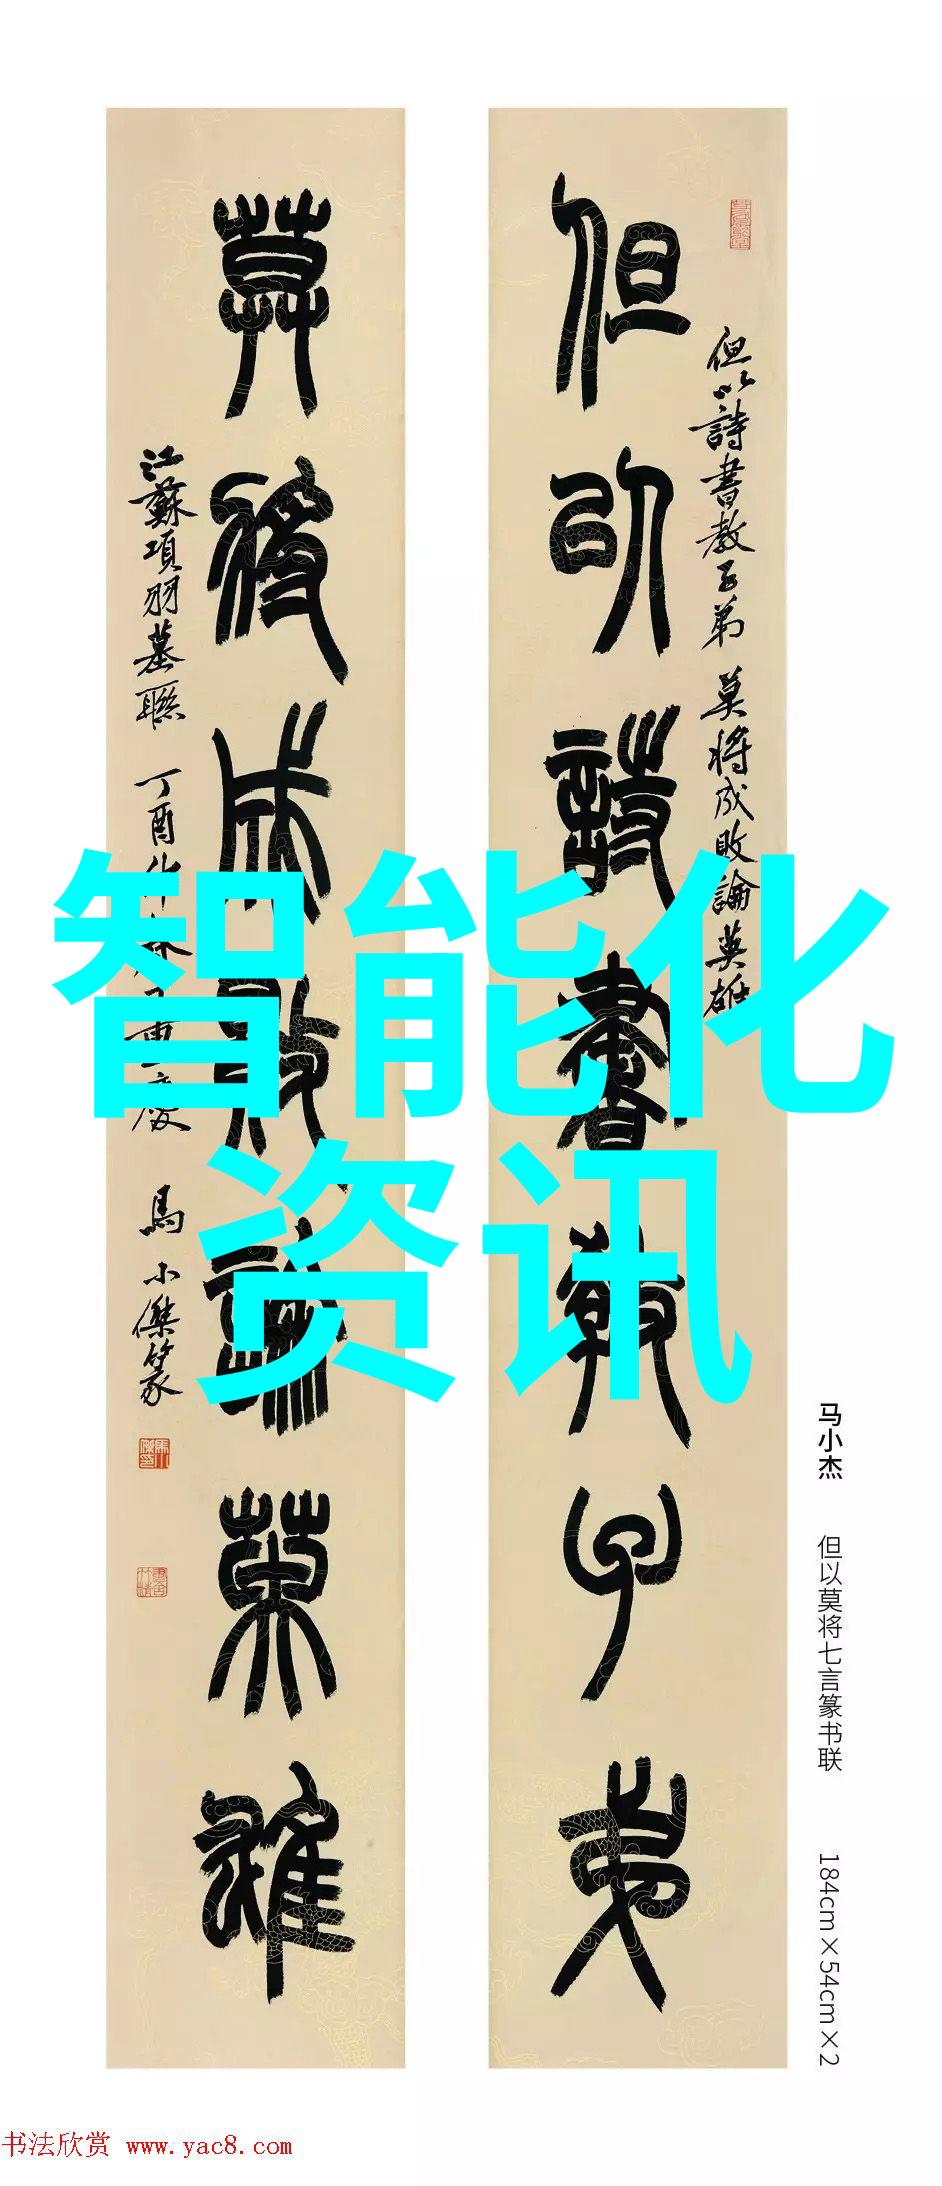 但以詩書教子弟
但以詩書教子弟 莫將成敗論英雄
莫將成敗論英雄
江蘇項羽墓聯 丁酉
馬小傑篆
智能化
资讯
马小杰 但以莫将七言篆书联 184cm×54cm×2
书法欣赏 www.yac8.com